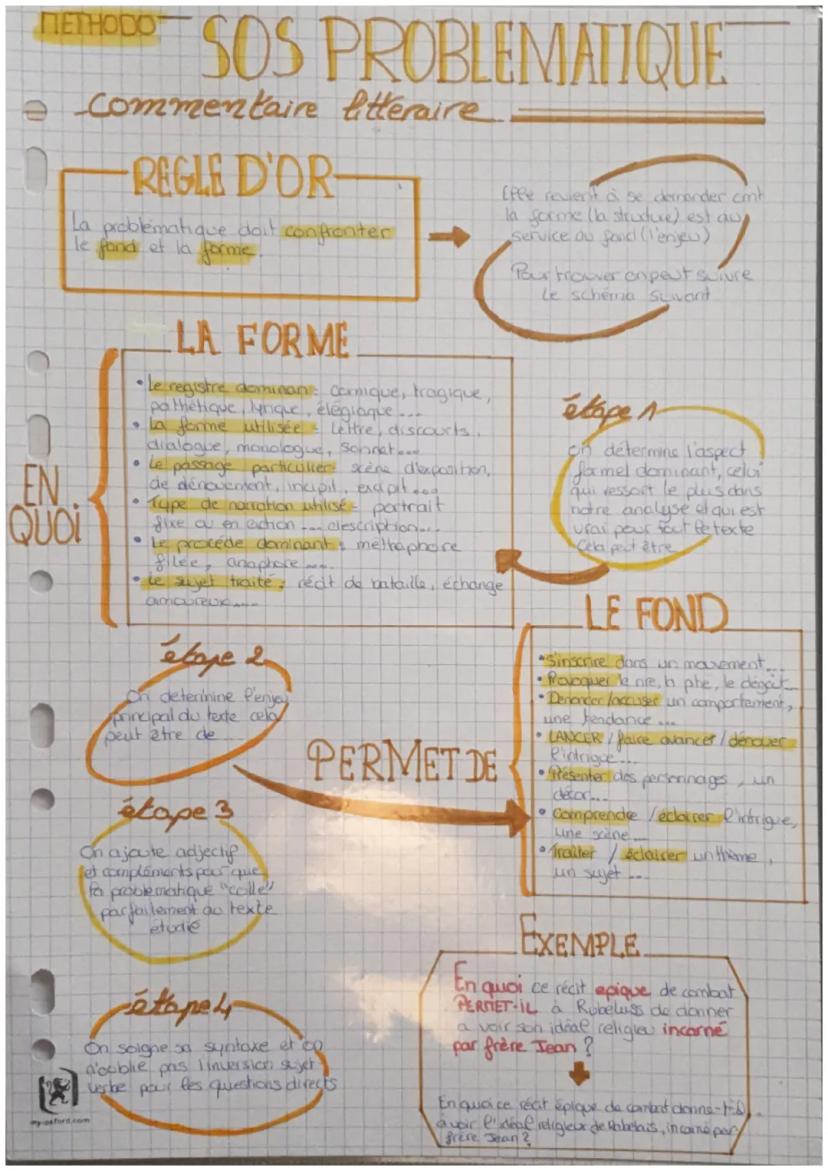 METHODO
SOS PROBLEMATIQUE
commentaire littéraire
REGLE D'OR
La problématique doit confronter
le fond et la forme.
Elle revient à se demander cmt
la forme (la structure) est au
service du fond (l'enjeu)
Pour trouver on peut suivre
le schéma suivant
LA FORME
EN
QUOI
• Le registre dominan : comique, tragique,
pathétique, lyrique, élégiaque ...
• La forme utilisée = lettre, discours,
dialogue, monologue, sonnet...
• Le passage particulier : scène d'exposition,
de dénouement, incipit, excipit...
• Type de narration utilisé = portrait
fixe ou en action ... description...
• Le procédé dominant : méthaphore
filée, anaphore ...
• Le sujet traité : récit de bataille, échange
amoureux....
étape 1
On détermine l'aspect
formel dominant, celui
qui ressort le plus dans
notre analyse et qui est
vrai pour tout le texte
Cela peut être
étape 2
On determine l'enjeu
principal du texte cela
peut être de ...
PERMET DE
LE FOND
• S'inscrire dans un mouvement...
• Provoquer le rire, la , le dégoût...
• Dénoncer/accuser un comportement,
une tendance ...
• LANCER / faire avancer / dénouer
l'intrigue...
• Présenter des personnages, un
décor...
• Comprendre / éclairer l'intrigue,
une scène...
• Traiter / éclairer un thème,
un sujet ...
étape 3
On ajoute adjectif
et compléments pour que
la problématique "colle"
parfaitement au texte
étudié
étape 4
On soigne sa syntaxe et on
n'oublie pas l'inversion sujet
verbe pour les questions directs
my-oxford.com
EXEMPLE
En quoi ce récit epique de combat
PERMET-IL à Rabelais de donner
a voir son idéal religieu incarné
par frère Jean ?
En quoi ce récit épique de combat donne-t-il
à voir l'idéal religieux de Rabelais, incarné par
frère Jean ?